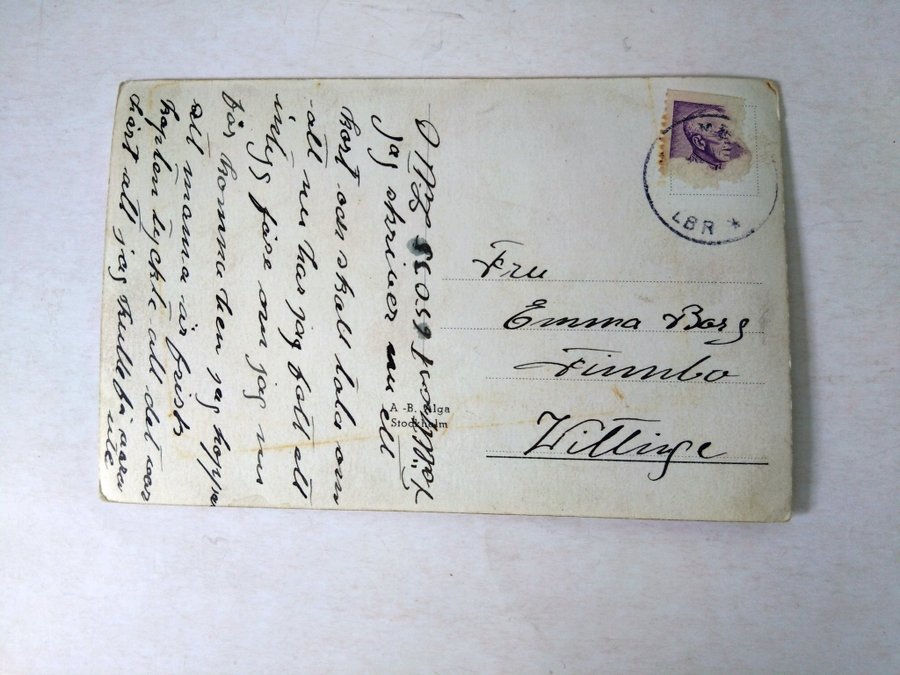 Jag skriver nu ett
kort och skall tala om
att nu har jag fått ett
intyg före om jag nu
får komma hem jag hoppas
att mama är frisk
kapten tyckte att det var
hårt att jag skulle få vara
ute
A.-B. Alga
Stockholm
LBR *
Fru
Emma Borg
Finnbo
Vittinge